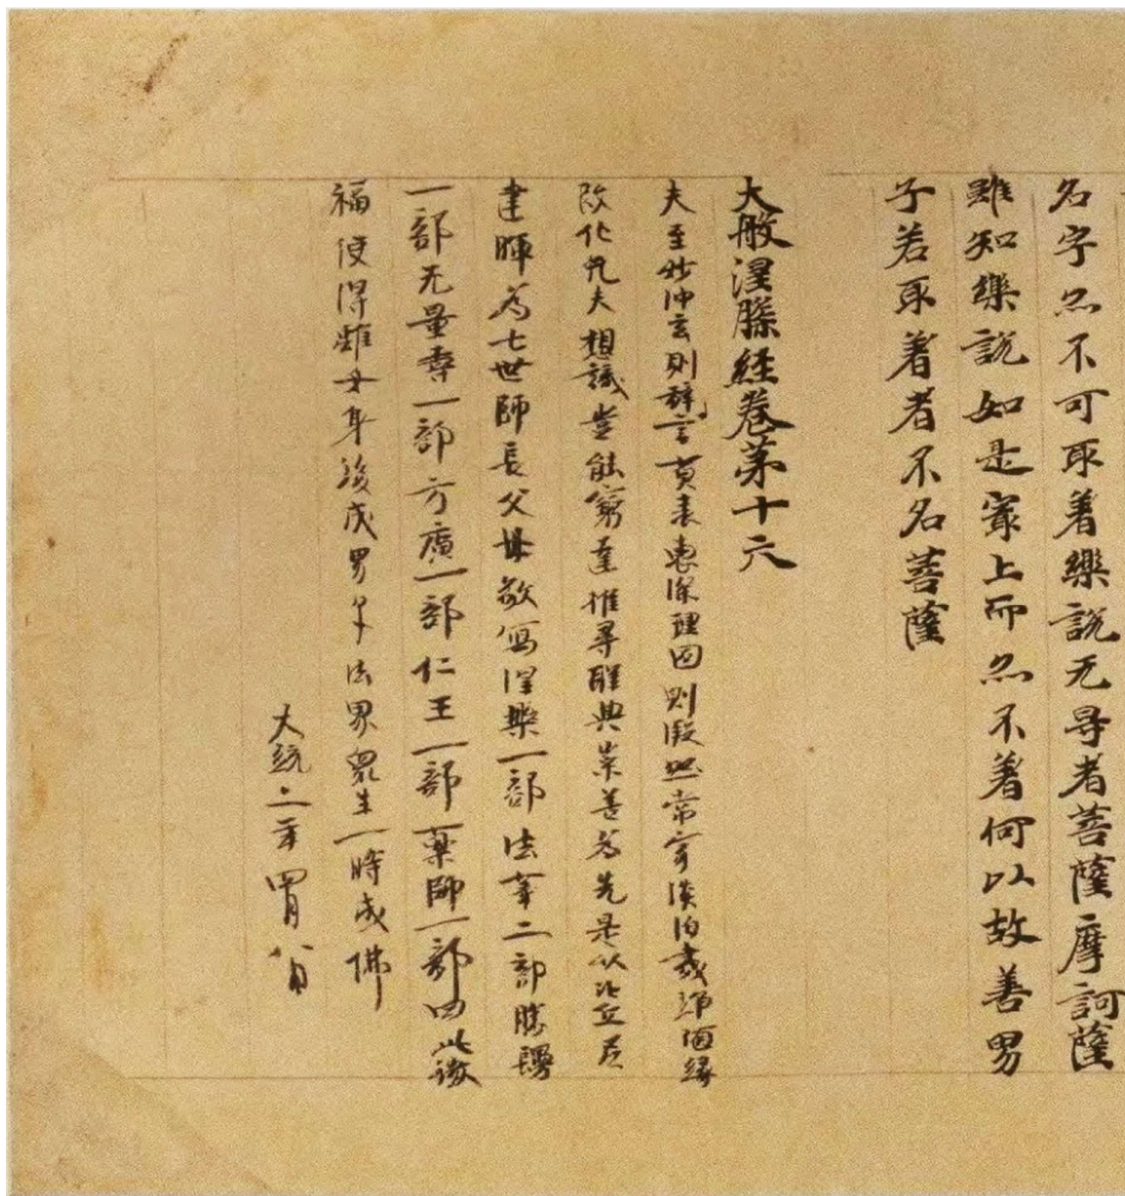 名字亦不可取著樂說无导者菩薩摩訶薩
雖知樂說如是寂上而亦不著何以故善男
子若取著者不名菩薩
大般涅槃經卷第十六
夫至妙冲玄則辞言莫表惠深理固則凝然常寂淡泊夷竫隨緣
改化凡夫想識豈能窮達推尋聖典崇善為先是以比丘尼
建暉為七世師長父母敬寫涅槃一部法華二部勝鬘
一部无量壽一部方廣一部仁王一部藥師一部因此微
福使得離女身後成男子法界眾生一時成佛
大統二年四月八日